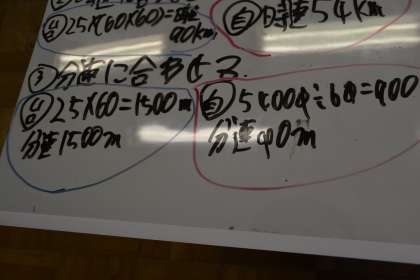 25×(60×60)=
90km
自 時速54km
③分速に合わせる
25×60=1500m
分速1500m
自 54000÷60=900
分速900m